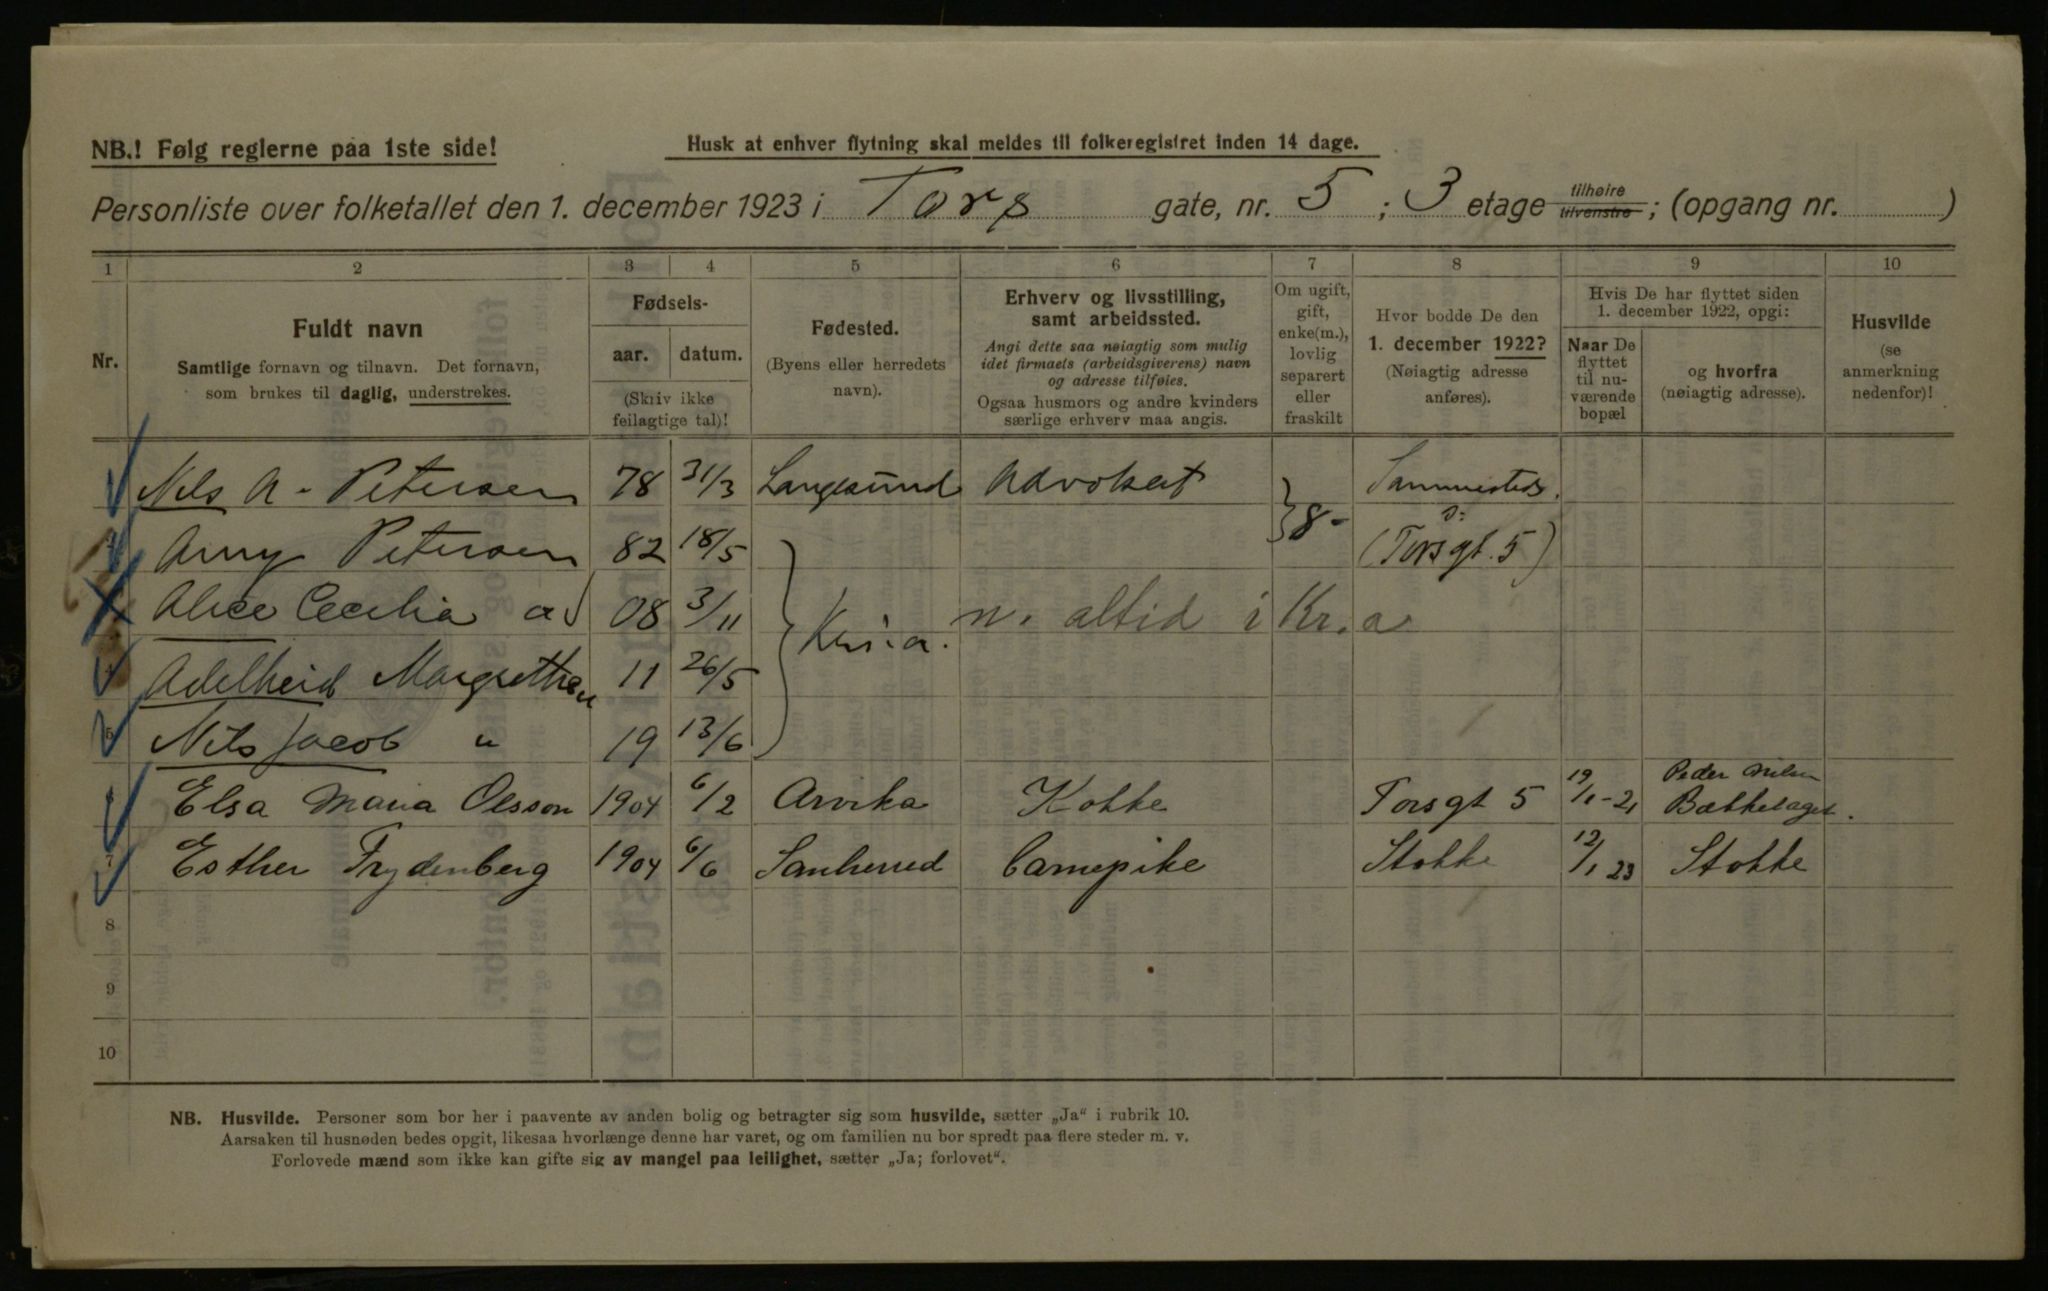 NB.! Følg reglerne paa 1ste side!
Husk at enhver flytning skal meldes til folkeregistret inden 14 dage.
Personliste over folketallet den 1. december 1923 i Tors gate, nr. 5 ; 3 etage tilhøire tilvenstre ; (opgang nr. )
1 2 3 4 5 6 7 8 9 10
Nr.
Fuldt navn
Samtlige fornavn og tilnavn. Det fornavn,
som brukes til daglig, understrekes.
Fødsels-
aar. datum.
(Skriv ikke
feilagtige tal)!
Fødested.
(Byens eller herredets
navn).
Erhverv og livsstilling,
samt arbeidssted.
Angi dette saa nøiagtig som mulig
idet firmaets (arbeidsgiverens) navn
og adresse tilføies.
Ogsaa husmors og andre kvinders
særlige erhverv maa angis.
Om ugift,
gift,
enke(m.),
lovlig
separert
eller
fraskilt
Hvor bodde De den
1. december 1922?
(Nøiagtig adresse
anføres).
Hvis De har flyttet siden
1. december 1922, opgi:
Naar De
flyttet
til nu-
værende
bopæl
og hvorfra
(nøiagtig adresse).
Husvilde
(se
anmerkning
nedenfor)!
Nils A. Petersen 78 31/3 Langesund Advokat Sammesteds.
Amy Petersen 82 18/5 (Torsgt. 5)
Alice Cecilia 08 3/11 n. altid i Kr.a
Adelheid Margrethe " 11 26/5 Kr.a.
5 Nils Jacob " 19 13/6
Elsa Maria Olsson 1904 6/2 Arvika Kokke Torsgt 5 19/1-21 Peder Nilsen Bækkelaget.
7 Esther Frydenberg 1904 6/6 Sanherred Barnepike Stokke 12/1 23 Stokke
8
9
10
NB. Husvilde. Personer som bor her i paavente av anden bolig og betragter sig som husvilde, sætter „Ja“ i rubrik 10.
Aarsaken til husnøden bedes opgit, likesaa hvorlænge denne har varet, og om familien nu bor spredt paa flere steder m. v.
Forlovede mænd som ikke kan gifte sig av mangel paa leilighet, sætter „Ja; forlovet“.